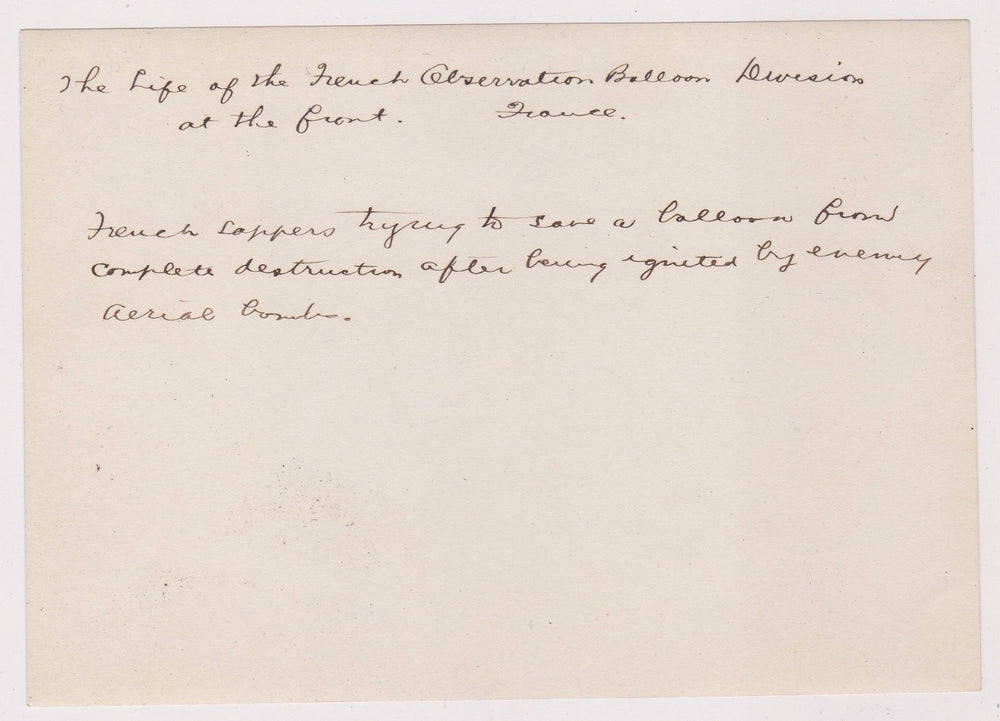 The Life of the French Observation Balloon Division
at the front. France.
French sappers trying to save a balloon from
complete destruction after being ignited by enemy
Aerial bombs.